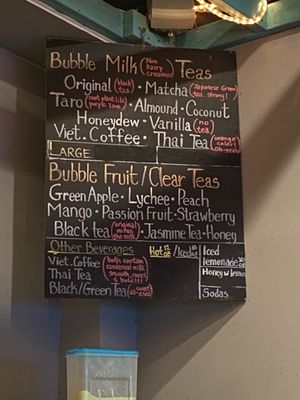 Bubble Milk (Non Dairy Creamer) Teas
Original (black tea) • Matcha (Japanese Green tea. strong!)
Taro • Almound • Coconut
Honeydew • Vanilla (no tea)
Viet. Coffee • Thai Tea (orange color! Oh-yeah)
LARGE
Bubble Fruit/Clear Teas
Green Apple • Lychee • Peach
Mango • Passion Fruit • Strawberry
Black tea (original minus the milk) • Jasmine Tea • Honey
Other Beverages Hot /Iced
Viet. Coffee (both contain condensed milk, smooth, sweet & bold!!!)
Thai Tea
Black/Green Tea
Iced lemonade
Honey w/ lemon
Sodas